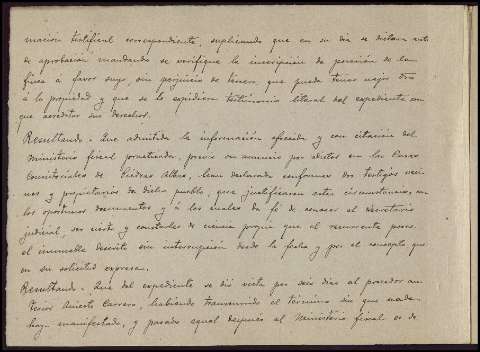 mación testifical correspondiente, suplicando que en su día se dictara auto
de aprobación mandando se verifique la inscripción de posesión de la
finca á favor suyo, sin perjuicio de tercero, que pueda tener mejor dro
á la propiedad y que se le expidiera testimonio literal del expediente con
que acreditar sus derechos.
Resultando. Que admitida la información ofrecida y con citación del
Ministerio fiscal practicada, previo un anuncio por edictos en las Casas
Consistoriales de Piedras Albas, han declarado conformes dos testigos veci-
nos y propietarios de dicho pueblo, que justificaron estas circunstancias, con
los oportunos documentos y á los cuales da fé de conocer el Secretario
judicial, ser cierto y constarles de ciencia propia que el recurrente posee
el inmueble descrito sin interrupción desde la fecha y por el concepto que
en su solicitud expresa.
Resultando. Que del expediente se dió vista por seis días al poseedor an-
terior Aniceto Carrero, habiendo transcurrido el término sin que nada
haya manifestado, y pasado igual después al Ministerio fiscal es de